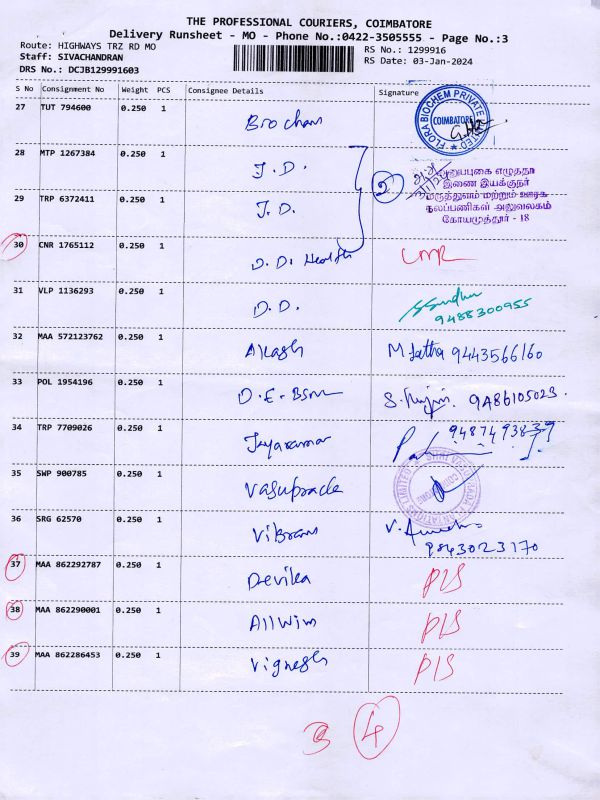 THE PROFESSIONAL COURIERS, COIMBATORE
Delivery Runsheet - MO - Phone No.:0422-3505555 - Page No.:3
Route: HIGHWAYS TRZ RD MO
Staff: SIVACHANDRAN
DRS No.: DCJB129991603
RS No.: 1299916
RS Date: 03-Jan-2024
S No Consignment No Weight PCS Consignee Details Signature
27 TUT 794600 0.250 1
FLORA BIOCHEM PRIVATE LIMITED
COIMBATORE
28 MTP 1267384 0.250 1 J.D.
2
இணை இயக்குநர்
மருத்துவம் மற்றும் ஊரக
நலப்பணிகள் அலுவலகம்
கோயமுத்தூர் - 18
29 TRP 6372411 0.250 1 J.D.
30 CNR 1765112 0.250 1 D.D. Health
31 VLP 1136293 0.250 1 D.D.
9488300955
32 MAA 572123762 0.250 1 Akash M Latha 9443566160
33 POL 1954196 0.250 1 9486105023
34 TRP 7709026 0.250 1 9487493839
35 SWP 900785 0.250 1
36 SRG 62570 0.250 1 Vibram
9843023170
37 MAA 862292787 0.250 1 Devika PIS
38 MAA 862290001 0.250 1 Allwin PIS
39 MAA 862286453 0.250 1 Vignesh PIS
3 4